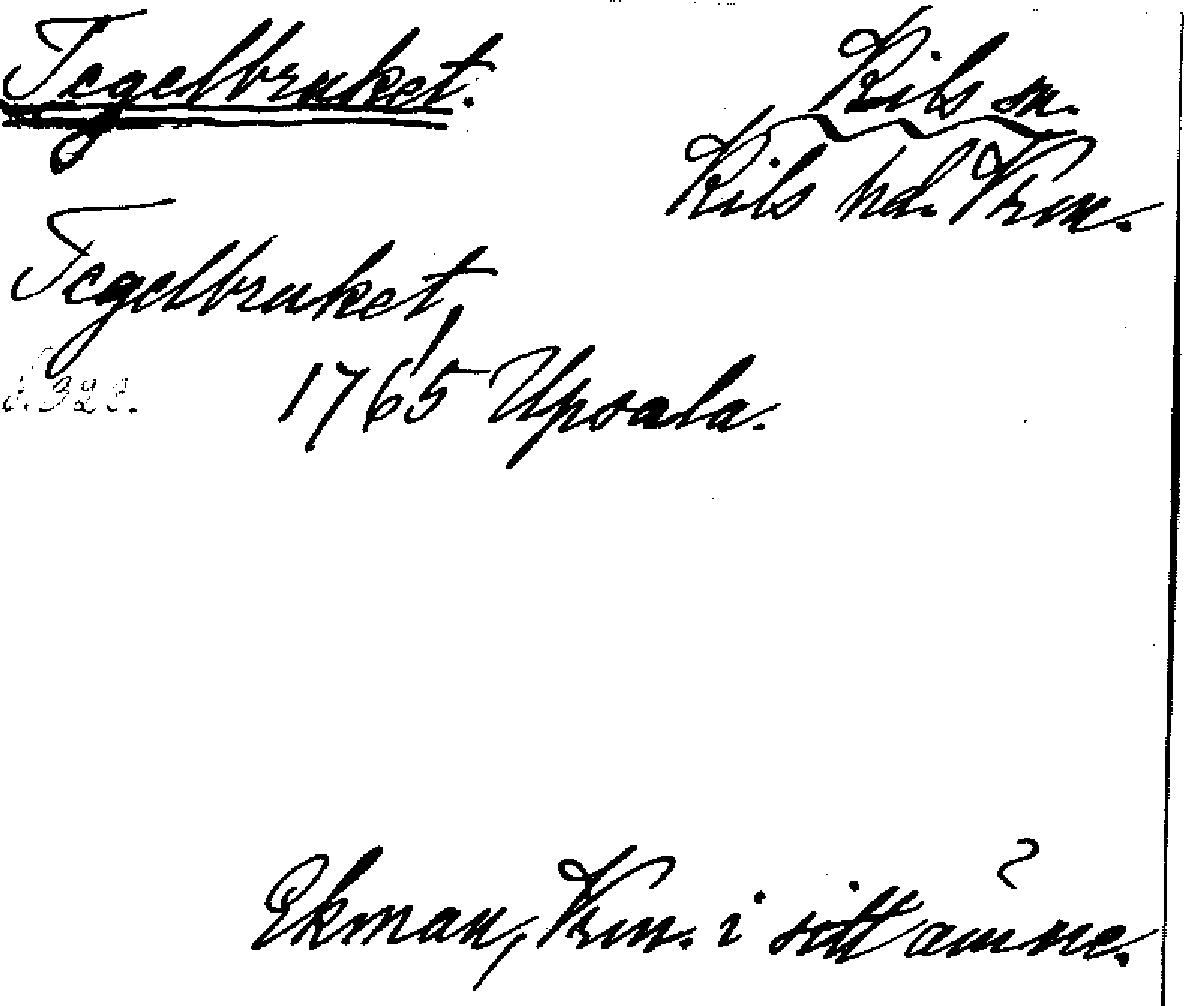 Tegelbruket.
Kils sn.
Kils hd. Vrm.
Tegelbruket,
s. 328.
1765 Upsala.
Ekman, Vrm. i sitt ämne.